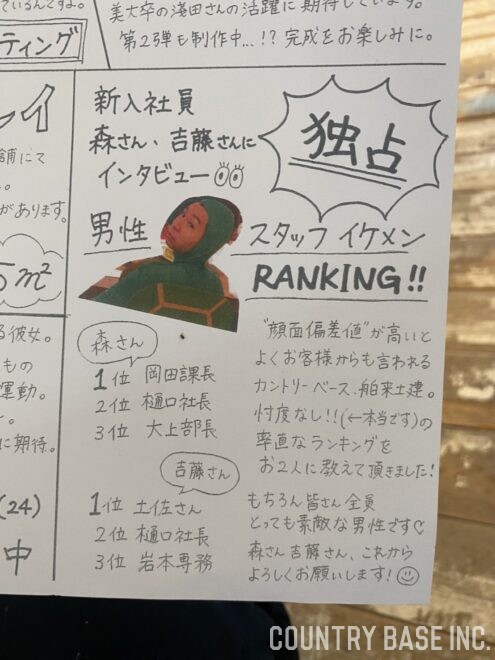 ているんですよ。
ティング
美大卒の淺田さんの活躍に期待しています。
第2弾も制作中…!? 完成をお楽しみに。
レイ
舗にて
があります。
5m²
る彼女。
もの
運動。
に期待。
(24)
中
新入社員
森さん、吉藤さんに
インタビュー
独占
男性
スタッフ イケメン
RANKING!!
森さん
1位 岡田課長
2位 樋口社長
3位 大上部長
吉藤さん
1位 土佐さん
2位 樋口社長
3位 岩本専務
"顔面偏差値"が高いと
よくお客様からも言われる
カントリーベース、舶来土建。
忖度なし!!(←本当です)の
率直なランキングを
お2人に教えて頂きました!
もちろん皆さん全員
とっても素敵な男性です♡
森さん吉藤さん、これから
よろしくお願いします!
COUNTRY BASE INC.